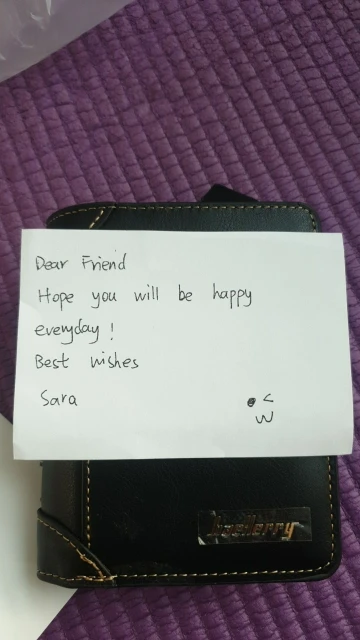 Dear Friend
Hope you will be happy
everyday !
Best wishes
Sara
baellerry